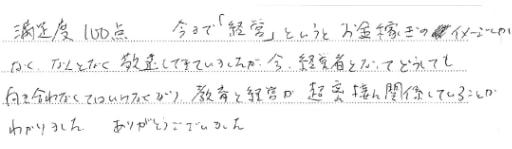 満足度100点　今まで「経営」というとお金稼ぎのイメージしか
なく、なんとなく敬遠してきていましたが、今、経営者となってどうしても
向き合わなくてはいけなくなり、教育と経営が超密接に関係していることが
わかりました　ありがとうございました